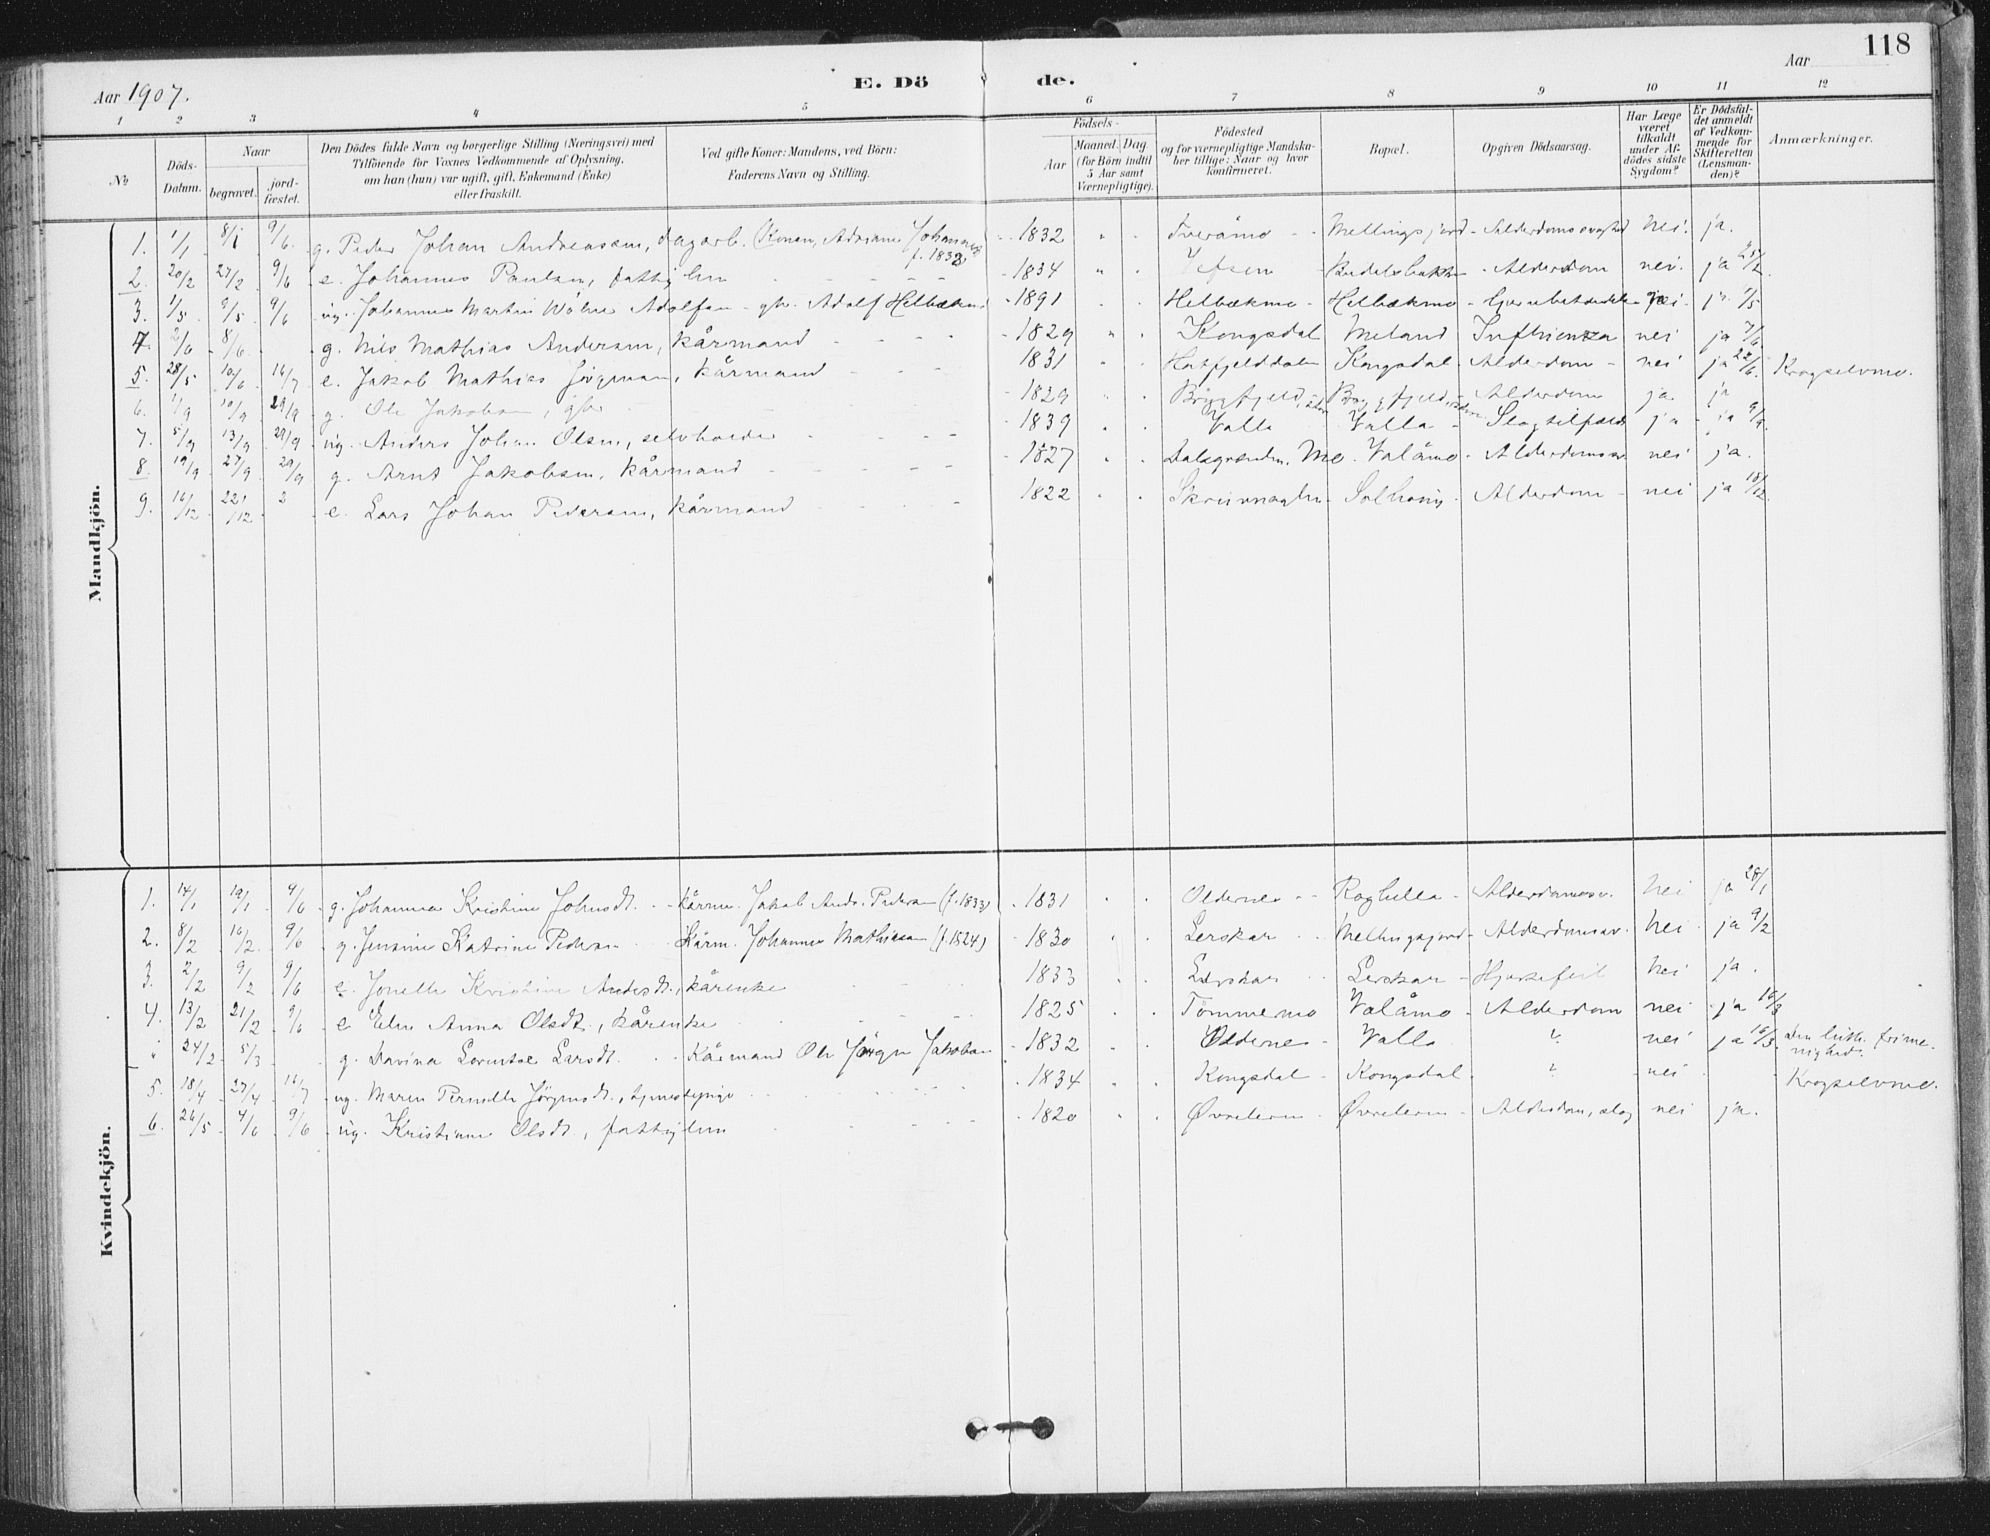 118
Aar 1907.
E. Dö de.
Aar
1 2 3 4 5 6 7 8 9 10 11 12
№
Döds-Datum.
Naar
begravet.
jord-fæstet.
Den Dödes fulde Navn og borgerlige Stilling (Næringsvei) med
Tilföiende for Voxnes Vedkommende af Oplysning,
om han (hun) var ugift, gift, Enkemand (Enke)
eller fraskilt.
Ved gifte Koner: Mandens, ved Börn:
Faderens Navn og Stilling.
Födsels-
Aar
Maaned. Dag.
(for Börn indtil
5 Aar samt
Værnepligtige).
Födested
og for værnepligtige Mandska-
ber tillige: Naar og hvor
konfirmeret.
Bopæl.
Opgiven Dödsaarsag.
Har Læge
været
tilkaldt
under Af-
dödes sidste
Sygdom?
Er Dödsfal-
det anmeldt
af Vedkom-
mende for
Skifteretten
(Lensman-
den)?
Anmærkninger.
Mandkjön.
1. 1/1 8/1 9/6 g. Peder Johan Andreassen, dagarb. (Konen, Adriane Johannes f. 1832) 1832 Tveråmo Mellingsjord Alderdomssvaghed nei. ja.
2. 20/2 27/2 9/6 e. Johannes Paulsen, fattiglem 1834 Vefsen Alderdom nei. ja
3. 1/5 9/5 9/6 ug. Johannes Martin Adolfsen Adolf Helbækmo 1891 Helbækmo Helbækmo nei ja 7/5
4. 2/6 8/6 g. Nils Mathias Andersen, kårmand 1829 Kongsdal Meland Influenza nei ja 7/6
5. 28/5 10/6 16/7 e. Jakob Mathias Jörgensen, kårmand 1831 Hatfjelddalen Kongsdal Alderdom nei ja 22/6 Krogselvmo.
6. 1/9 10/9 29/9 g. Ole Jakobsen, gbr. 1829 Bryggfjeld, Bryggfjeld Alderdom ja ja
7. 5/9 13/9 29/9 ug. Anders Johan Olsen, selvholder 1839 Valla Valla Slagtilfælde ja ja 9/9
8. 19/9 27/9 29/9 g. Arnt Jakobsen, kårmand 1827 Dalsgrenden, Mo Valåmo Alderdomssv. nei ja.
9. 16/12 22/12 e. Lars Johan Pedersen, kårmand 1822 Solhaug Alderdom nei ja 18/12
Kvindekjön.
1. 14/1 19/1 9/6 g. Johanna Kristine Johnsdt. kårm. Jakob Ands. Pedersen (f. 1833) 1831 Oldernes Røghella Alderdomssv. nei ja 28/1
2. 8/2 16/2 9/6 g. Jensine Katrine Pedersen Kårm. Johannes Mathiassen (f. 1824) 1830 Lerskar Mellingsjord Alderdomssv. nei ja 9/2
3. 2/2 9/2 9/6 e. Jonette Kristine Andersdt., kårenke 1833 Lerskar Lerskar Hjertefeil nei ja.
4. 13/2 21/2 9/6 e Elen Anna Olsdt., kårenke 1825 Tömmermo Valåmo Alderdom nei ja 16/3
24/2 5/3 g. Davina Lorentse Larsdt. Kårmand Ole Jörgn Jakobsen 1832 Oldernes Valla " nei ja 16/3 Den luth. frime-
nighed.
5. 18/4 27/4 16/7 ug. Maren Pernille Jörgensdt., tjenestepige 1834 Kongsdal Kongsdal " nei Krogselvmo.
6. 26/5 4/6 9/6 ug. Kristianne Olsdt., fattiglem 1820 Øvreleren Øvreleren Alderdom, slag nei ja.